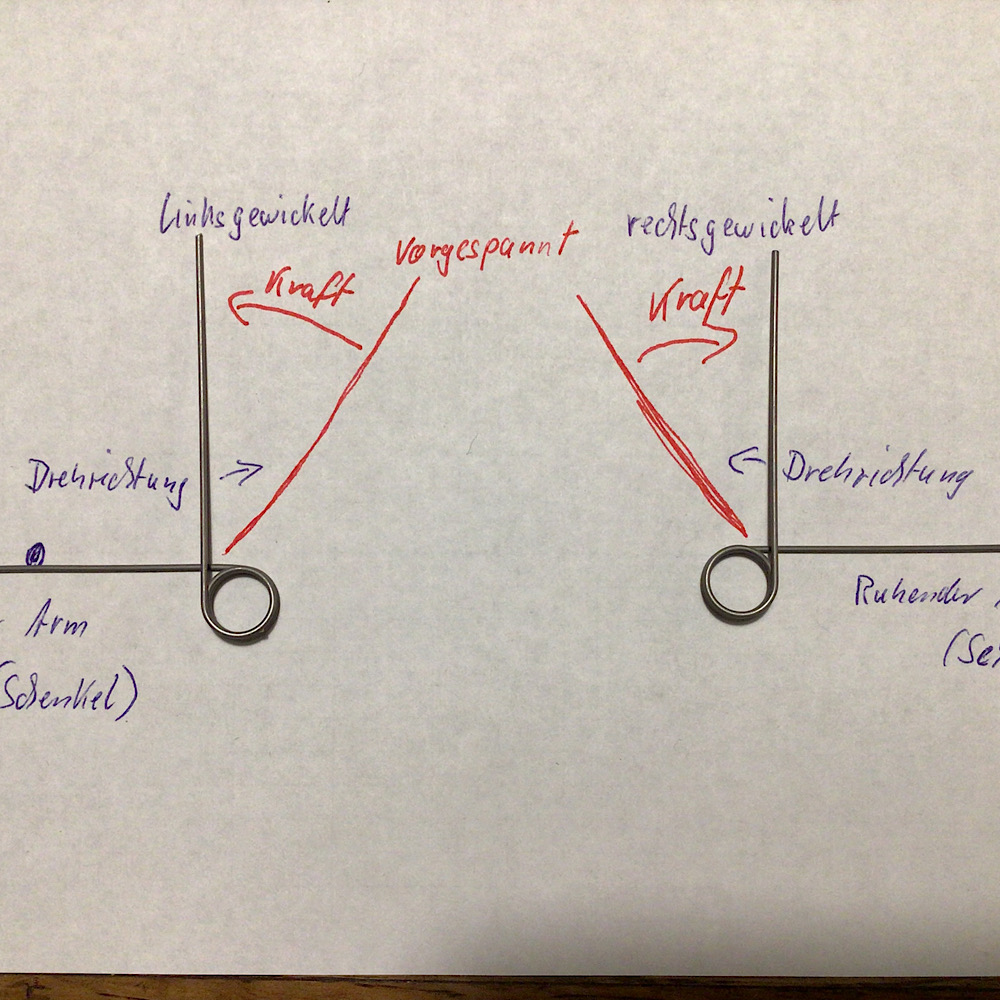 linksgewickelt
vorgespannt
rechtsgewickelt
Kraft
Kraft
Drehrichtung
Drehrichtung
Arm
(Schenkel)
Ruhender